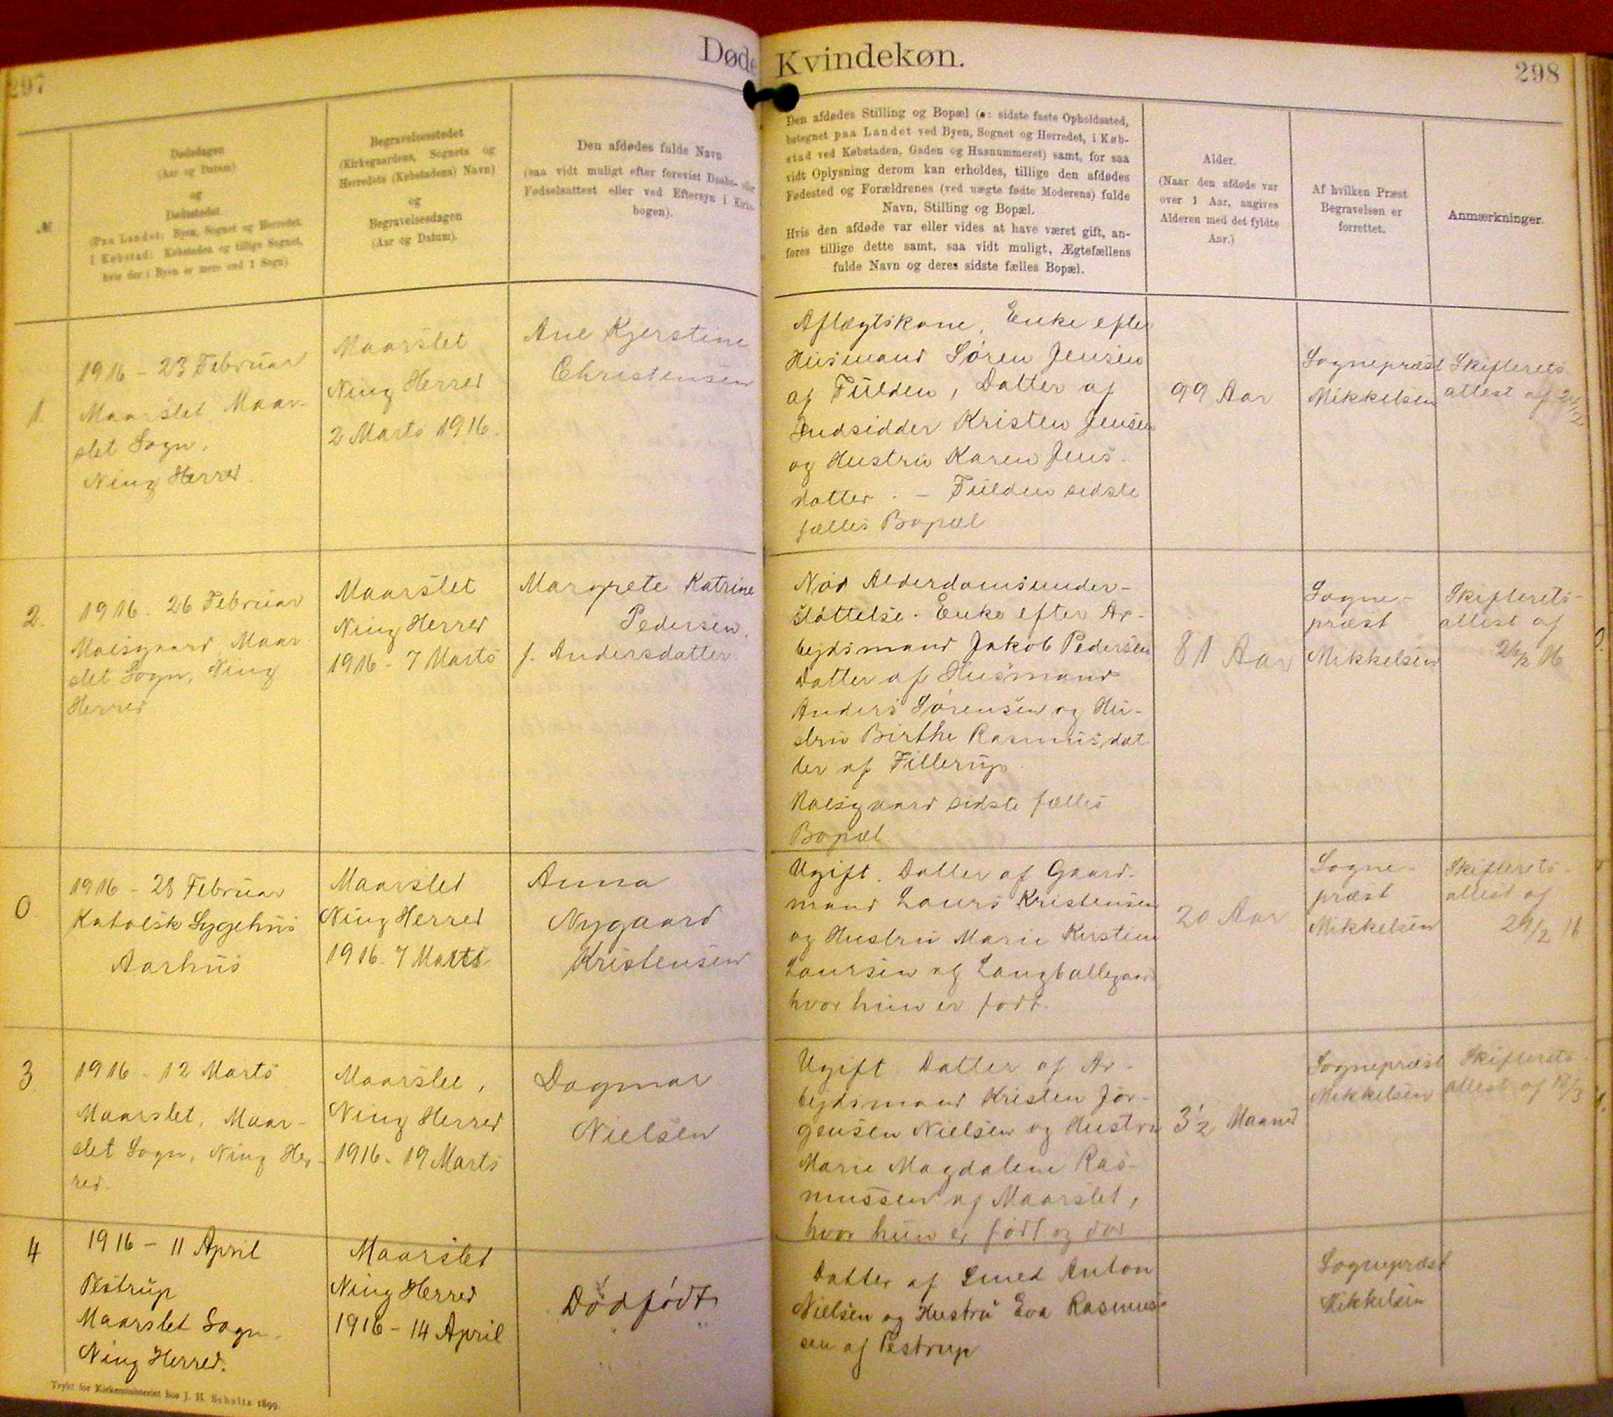 297
Døde
Kvindekøn.
298
№
Dødsdagen
(Aar og Datum)
og
Dødsstedet
(Paa Landet: Byen, Sognet og Herredet.
I Købstad: Købstaden og tillige Sognet,
hvis der i Byen er mere end 1 Sogn).
Begravelsesstedet
(Kirkegaardens, Sognets og
Herredets (Købstadens) Navn)
og
Begravelsesdagen
(Aar og Datum).
Den afdødes fulde Navn
(saa vidt muligt efter forevist Daabs- eller
Fødselsattest eller ved Eftersyn i Kirke-
bogen).
Den afdødes Stilling og Bopæl (ɔ: sidste faste Opholdssted,
betegnet paa Landet ved Byen, Sognet og Herredet, i Køb-
stad ved Købstaden, Gaden og Husnummeret) samt, for saa
vidt Oplysning derom kan erholdes, tillige den afdødes
Fødested og Forældrenes (ved uægte fødte Moderens) fulde
Navn, Stilling og Bopæl.
Hvis den afdøde var eller vides at have været gift, an-
føres tillige dette samt, saa vidt muligt, Ægtefællens
fulde Navn og deres sidste fælles Bopæl.
Alder.
(Naar den afdøde var
over 1 Aar, angives
Alderen med det fyldte
Aar.)
Af hvilken Præst
Begravelsen er
forrettet.
Anmærkninger.
1.
1916 - 23 Februar
Maarslet Maar-
slet Sogn.
Ning Herred.
Maarslet
Ning Herred
2 Marts 1916.
Ane Kjerstine
Christensen
Aftægtskone, Enke efter
Husmand Sören Jensen
af Fulden, Datter af
Indsidder Kristen Jensen
og Hustru Karen Jens-
datter. - Fulden sidste
fælles Bopæl
99 Aar
Sognepræst
Mikkelsen
Skifterets-
attest af
2.
1916 - 26 Februar
Malsgaard, Maar-
slet Sogn, Ning
Herred
Maarslet
Ning Herred
1916 - 7 Marts
Margrete Katrine
Pedersen,
f. Andersdatter
Nød Alderdomsunder-
støttelse. Enke efter Ar-
bejdsmand Jakob Pedersen
Datter af Husmand
Anders Sørensen og Hu-
stru Birthe Rasmusdat-
ter af Fillerup
Malsgaard sidste fælles
Bopæl
81 Aar
Sogne-
præst
Mikkelsen
Skifterets-
attest af
26/2 16
0
1916 - 28 Februar
Katolsk Sygehus
Aarhus
Maarslet
Ning Herred
1916 - 7 Marts
Anna
Nygaard
Kristensen
Ugift. Datter af Gaard-
mand Laurs Kristensen
og Hustru Marie Kirstine
Laursen af Langballegaard
hvor hun er født.
20 Aar
Sogne-
præst
Mikkelsen
Skifterets-
attest af
29/2 16
3
1916 - 12 Marts
Maarslet, Maar-
slet Sogn, Ning Her-
red.
Maarslet,
Ning Herred
1916 - 19 Marts
Dagmar
Nielsen
Ugift Datter af Ar-
bejdsmand Kristen Jør-
gensen Nielsen og Hustru
Marie Magdalene Ras-
mussen af Maarslet,
hvor hun er født og død
3 1/2 Maaned
Sognepræst
Mikkelsen
Skifterets-
attest af
4
1916 - 11 April
Pestrup
Maarslet Sogn
Ning Herred.
Maarslet
Ning Herred
1916 - 14 April
Dødfødt
Datter af Smed Anton
Nielsen og Hustru Eva Rasmus-
sen af Pestrup
Sognepræst
Mikkelsen
Trykt for Kirkeministeriet hos J. H. Schultz 1899.